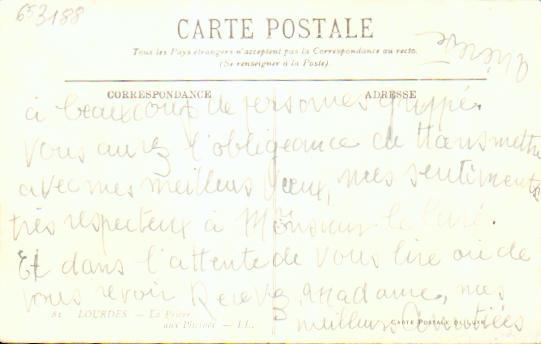 653188
CARTE POSTALE
Tous les Pays étrangers n'acceptent pas la Correspondance au recto.
(Se renseigner à la Poste).
CORRESPONDANCE
ADRESSE
à beaucoup de personnes grippé.
Vous aurez l'obligeance de transmettre
avec mes meilleurs vœux, mes sentiments
très respecteux à Monsieur le Curé.
Et dans l'attente de vous lire ou de
vous revoir Recevez, Madame, mes
meilleurs Amitiées
81 LOURDES — La Prière
aux Piscines — LL.